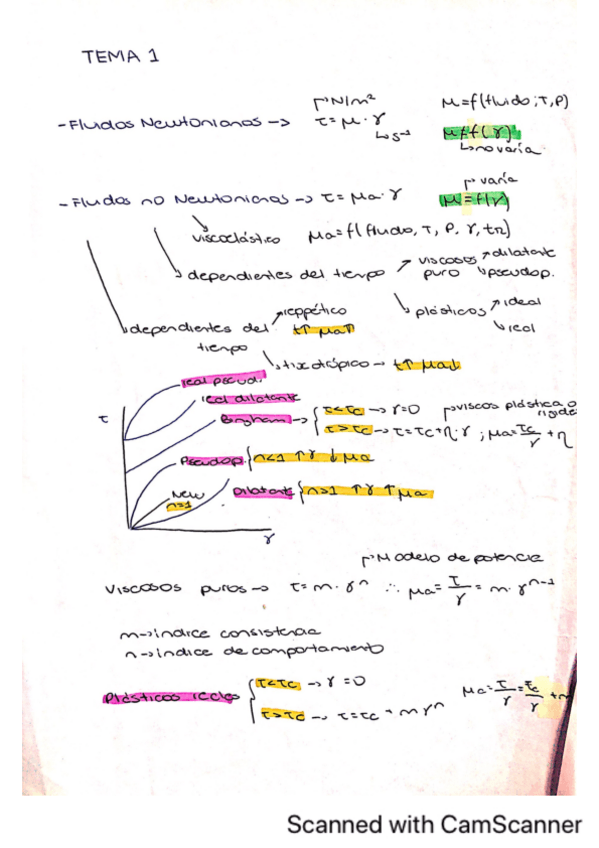 TEMA 1
↱N/m²
μ=f(fluido; T, P)
-Fluidos Newtonianos → τ = μ · γ
↳s⁻¹
μ≠f(γ)
↳no varía
↱varía
-Fluidos no Newtonianos → τ = μa · γ
μ=f(γ)
viscoelástico
μa=f(fluido, T, P, γ, tn)
dependientes del tiempo
viscosos puro
dilatante
pseudop.
plásticos
ideal
real
dependientes del tiempo
reopético
t↑ μa↑
tixotrópico → t↑ μa↓
real pseud.
real dilatante
τ
Bingham → { τ<τc → γ=0
↱viscos plástica o rígidez
τ>τc → τ=τc+η·γ ; μa=τc/γ + η
Pseudop { n<1 ↑γ ↓μa
New n=1
Dilatante { n>1 ↑γ ↑μa
γ
↱Modelo de potencia
Viscosos puros → τ = m · γⁿ ∴ μa = τ/γ = m · γⁿ⁻¹
m→índice consistencia
n→índice de comportamiento
Plásticos reales { τ<τc → γ=0
μa = τ/γ = τc/γ +
τ>τc → τ=τc + mγⁿ
Scanned with CamScanner